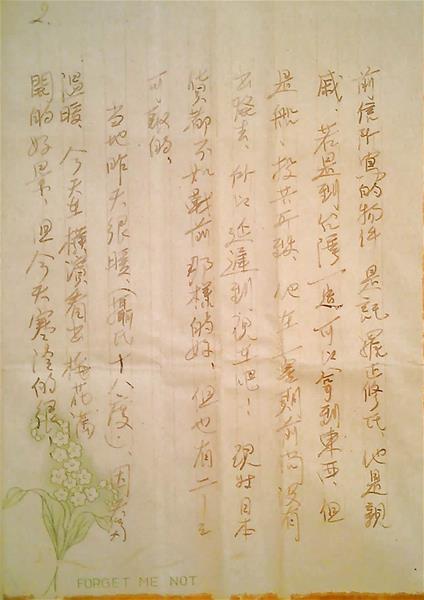 2.
前信所寫的物件 是託羅正修氏、他是親
戚、若是到台灣一定可以拿到東西、但
是船、投、他在一星期前尚沒有
去、所以遲到現在吧！ 現時日本
貨都不如戰前那樣的好、但也有二、三
可觀的、
當地昨天很暖、（攝氏十八度）、因為
溫暖、今天在橫濱看出梅花滿
開的好景、但今天寒冷的很、
FORGET ME NOT